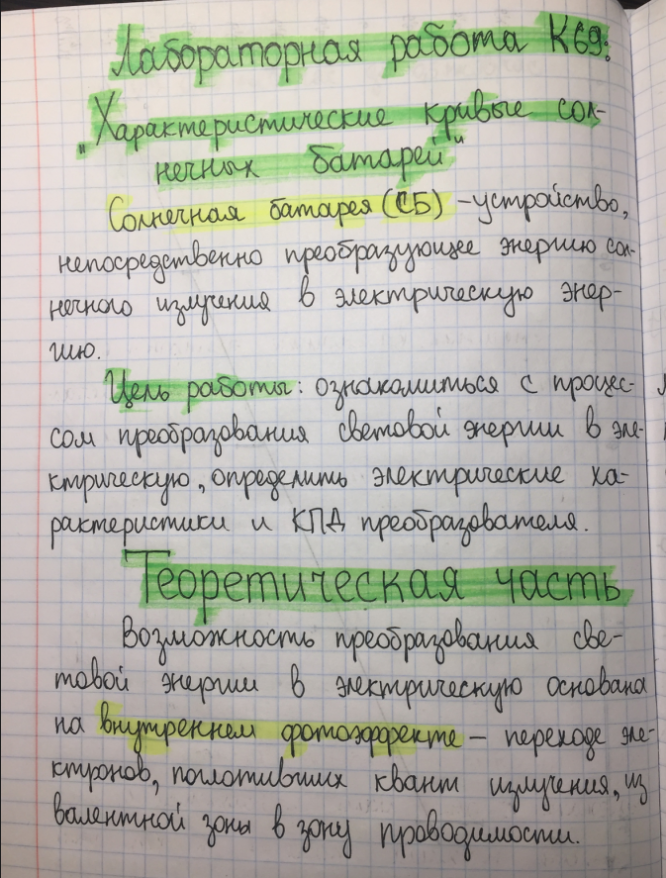 Лабораторная работа К69:
"Характеристические кривые сол-
нечных батарей"
Солнечная батарея (СБ) - устройство,
непосредственно преобразующее энергию сол-
нечного излучения в электрическую энер-
гию.
Цель работы: ознакомиться с процес-
сом преобразования световой энергии в эле-
ктрическую, определить электрические ха-
рактеристики и КПД преобразователя.
Теоретическая часть
Возможность преобразования све-
товой энергии в электрическую основана
на внутреннем фотоэффекте - переходе эле-
ктронов, поглотивших квант излучения, из
валентной зоны в зону проводимости.